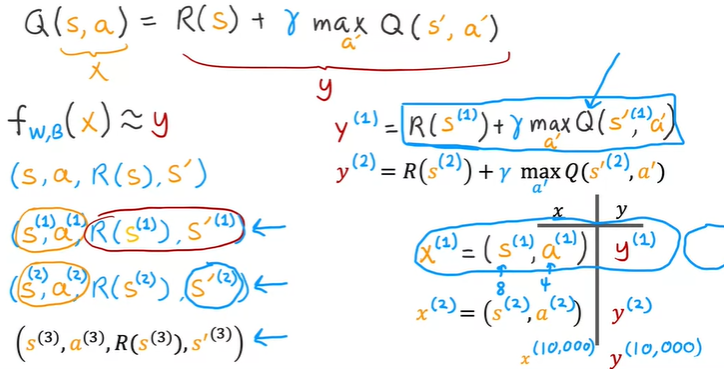 Q(s, a) = R(s) + γ max_{a'} Q(s', a')
x
y
f_{W,B}(x) ≈ y
(s, a, R(s), s')
(s^{(1)}, a^{(1)}, R(s^{(1)}), s'^{(1)}) ←
(s^{(2)}, a^{(2)}, R(s^{(2)}), s'^{(2)}) ←
(s^{(3)}, a^{(3)}, R(s^{(3)}), s'^{(3)}) ←
y^{(1)} = R(s^{(1)}) + γ max_{a'} Q(s'^{(1)}, a')
y^{(2)} = R(s^{(2)}) + γ max_{a'} Q(s'^{(2)}, a')
x y
x^{(1)} = (s^{(1)}, a^{(1)}) y^{(1)}
8 4
x^{(2)} = (s^{(2)}, a^{(2)}) y^{(2)}
x^{(10,000)} y^{(10,000)}